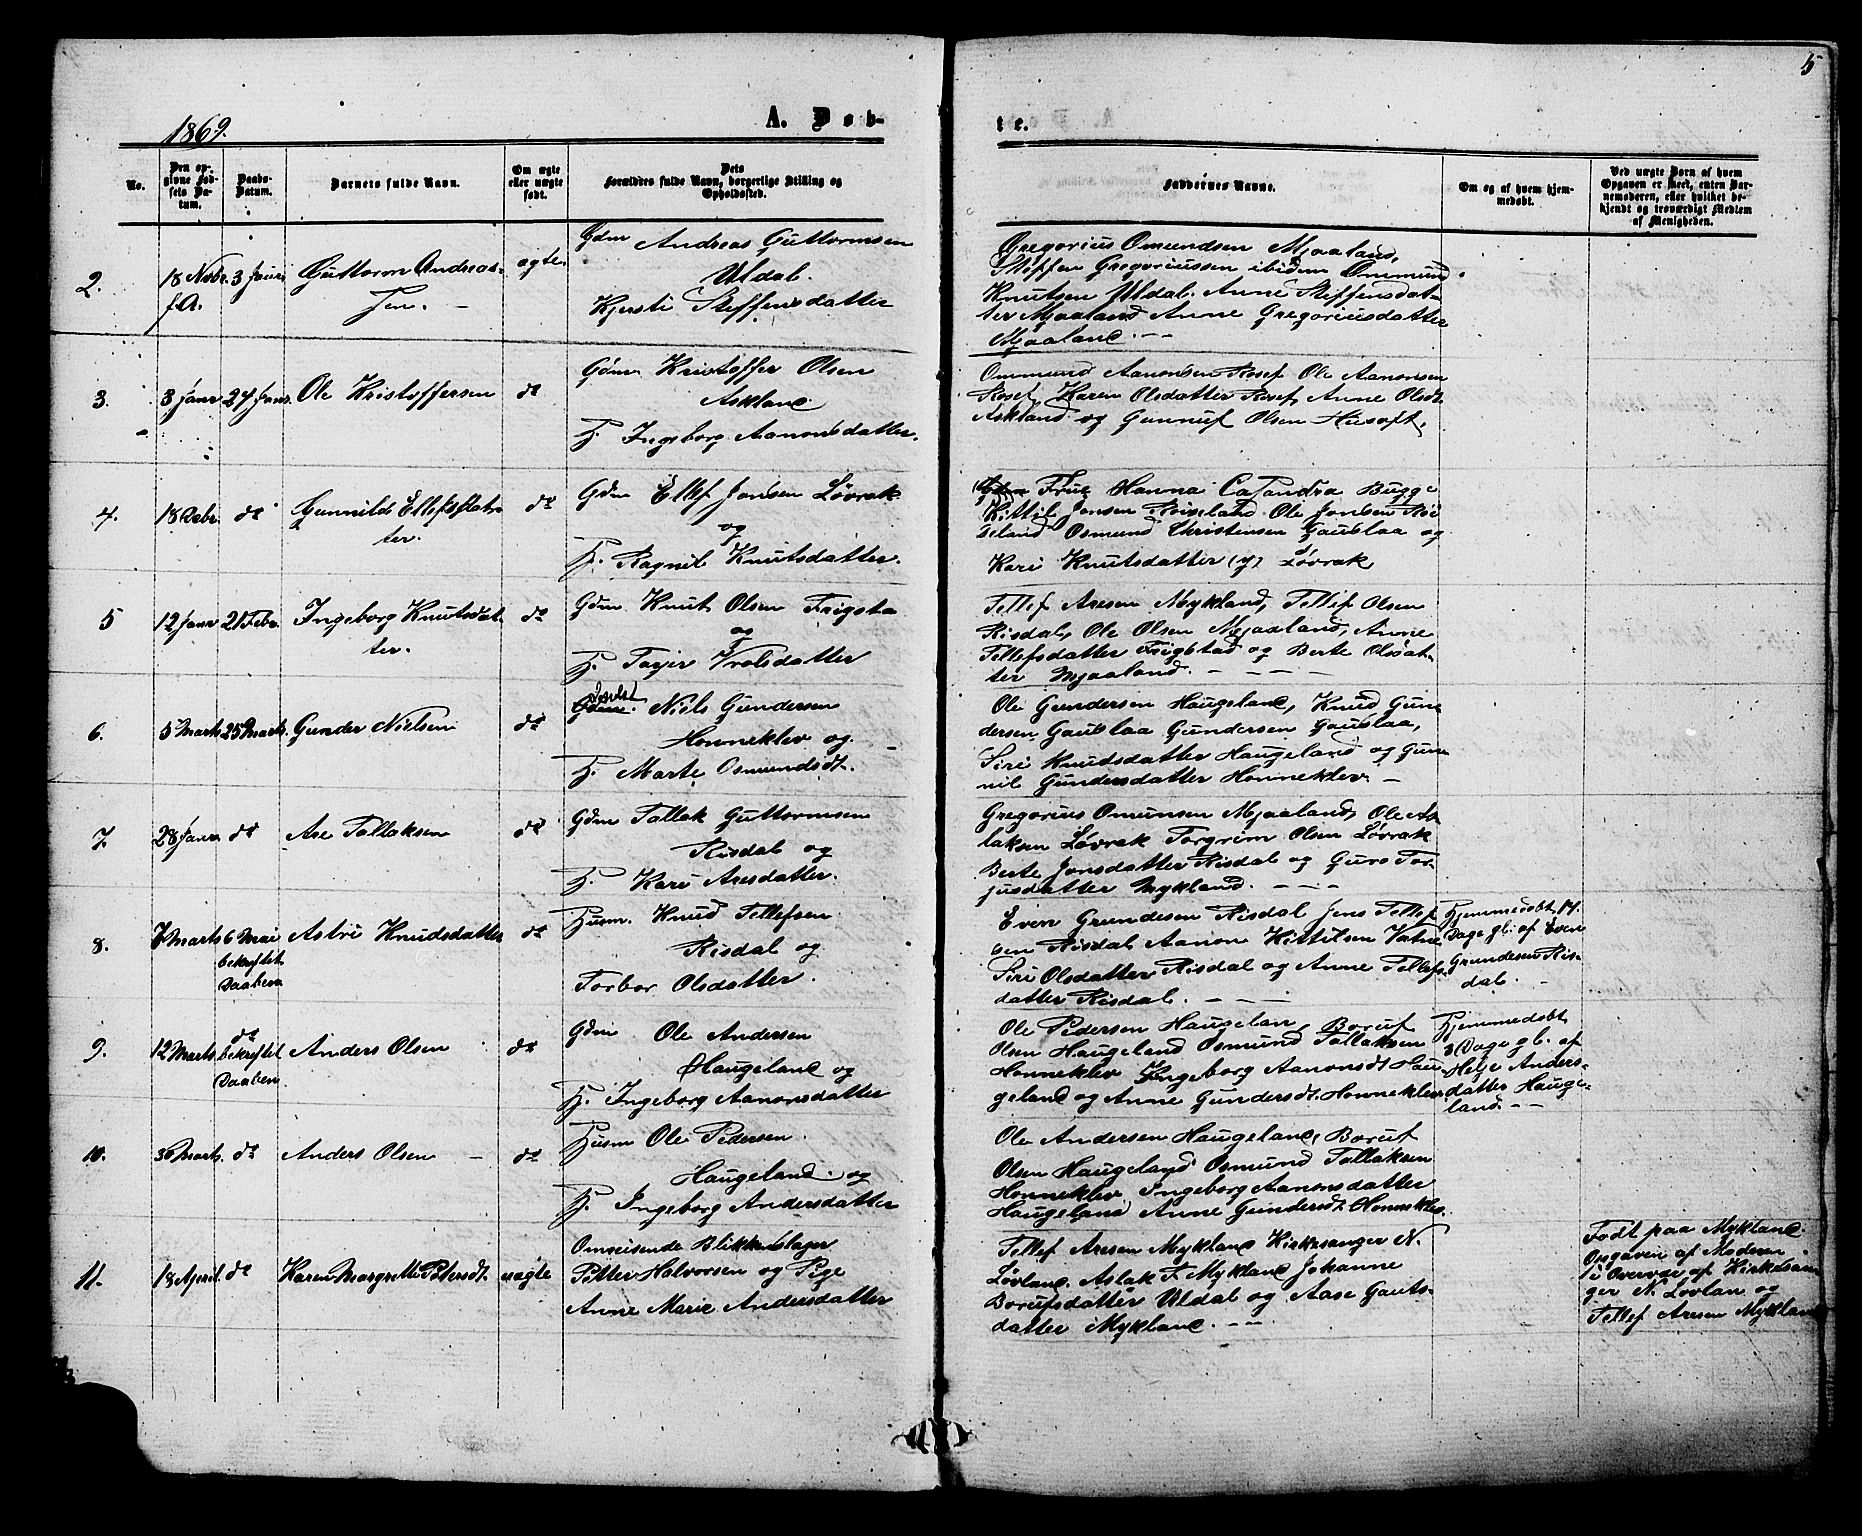 5
1869.
A. Døb-
te.
No.
Den op-
givne Fød-
sels Da-
tum.
Daabs-
Datum.
Barnets fulde Navn.
Om ægte
eller uægte
født.
Dets
Forældres fulde Navn, borgerlige Stilling og
Opholdssted.
Faddernes Navne.
Om og af hvem hjem-
medøbt.
Ved uægte Børn af hvem
Opgaven er skeet, enten Bar-
nemoderen, eller hvilket be-
kjendt og troværdigt Medlem
af Menigheden.
2.
18 Novbr.
f. A.
3 Janr.
Guttorm Andreas-
sen. -
ægte.
Gdm Andreas Guttormsen
Uldal.
Kjersti Steffensdatter
Gregorius Omundsen Mjaaland,
Steffen Gregoriussen ibidem Ommund
Knutsen Uldal. Anne Steffensdat-
ter Mjaaland Anne Gregoriusdatter
Mjaaland. - -
3.
3 Janr
24 Janr.
Ole Kristoffersen
do
Gdm. Kristoffer Olsen
Askland
H. Ingeborg Aanonsdatter.
Ommund Aanonsen Rosef Ole Aanonsen
Rosef, Karen Olsdatter Rosef, Anne Olsdt.
Askland og Gunnuf Olsen Husoft.
4.
18 Debr.
do
Gunnild Ellefsdat-
ter.
do
Gdm Ellef Jonsen Løvrak
og
H. Ragnil Knutsdatter.
Frue Hanna Casandra Bugge
Kittil Jonsen Roiseland Ole Jonsen Röi
seland Osmund Christensen Gauslaa og
Kari Knutsdatter (y) Løvrak
5
12 Janr
21 Febr.
Ingeborg Knutsdat-
ter.
do
Gdm. Knut Olsen Frigsta
og
H. Tarjer Vrolsdatter
Tellef Aresen Mykland, Tellef Olsen
Risdal, Ole Olsen Mjaaland, Anne
Tellefsdatter Frigstad og Berte Olsdat-
ter Mjaaland. - - - -
6.
5 Marts
25 Marts.
Gunder Nielsen
do
Gdm. Niels Gundersen
Honneklev og
H. Marte Osmundsdt.
Ole Gundersen Haugeland, Knud Gun
dersen Gauslaa Gundersen Gauslaa,
Siri Knutsdatter Haugeland og Gun-
nil Gundersdatter Honneklev. -
7.
28 Janr.
do
Are Tallaksen
do
Gdm Tallak Guttormsen
Risdal og
H. Kari Aresdatter.
Gregorius Omunsen Mjaaland, Ole As-
laksen Løvrak Torgrim Olsen Løvrak
Berte Jonsdatter Risdal og Guro Tor-
jusdatter Mykland. - - -
8.
7 Marts
6 Mai
bekreftet
Daaben
Astri Knudsdatter
do
Husm. Knud Tellefsen
Risdal og
Torbor Olsdatter.
Even Grundesen Risdal Jens Tellef
sen Risdal Aanon Kittilsen Vatne
Siri Olsdatter Risdal og Anne Tellefs-
datter Risdal. - - -
Hjemmedøbt 14.
Dage gl. af Even
Grundesen Ris-
dal. -
9.
12 Marts.
do
bekreftet
Daaben.
Anders Olsen
do
Gdm Ole Andersen
Haugeland og
H. Ingeborg Aanonsdatter
Ole Pedersen Haugelan, Boruf
Olsen Haugeland Osmund Tallaksen
Honneklev Ingeborg Aanonsdt. Hau-
geland og Anne Gundersdt. Honneklev.
Hjemmedøbt
3 Dage gl. af
Helje Anders-
datter Hauge-
land. - -
10.
30 Marts.
do
Anders Olsen -
do
Husm Ole Pedersen.
Haugeland. og
H. Ingeborg Andersdatter
Ole Andersen Haugeland, Boruf
Olsen Haugeland Osmund Tallaksen
Honneklev, Ingeborg Aanonsdatter
Haugeland Anne Gundersdt. Honneklev.
11.
18 April.
do
Karen Margrette Petersdt.
uægte
Omreisende Blikkenslager
Petter Halvorsen og Pige
Anne Marie Andersdatter
Tellef Aresen Mykland Kirkesanger N.
Løvland, Aslak T. Mykland Johanne
Borufsdatter Uldal og Aase Gauts-
datter Mykland. - -
Født paa Mykland.
Opgaven af Moderen
i Overvær af Kirkesan
ger N. Løvlan og
Tellef Aresen Mykland